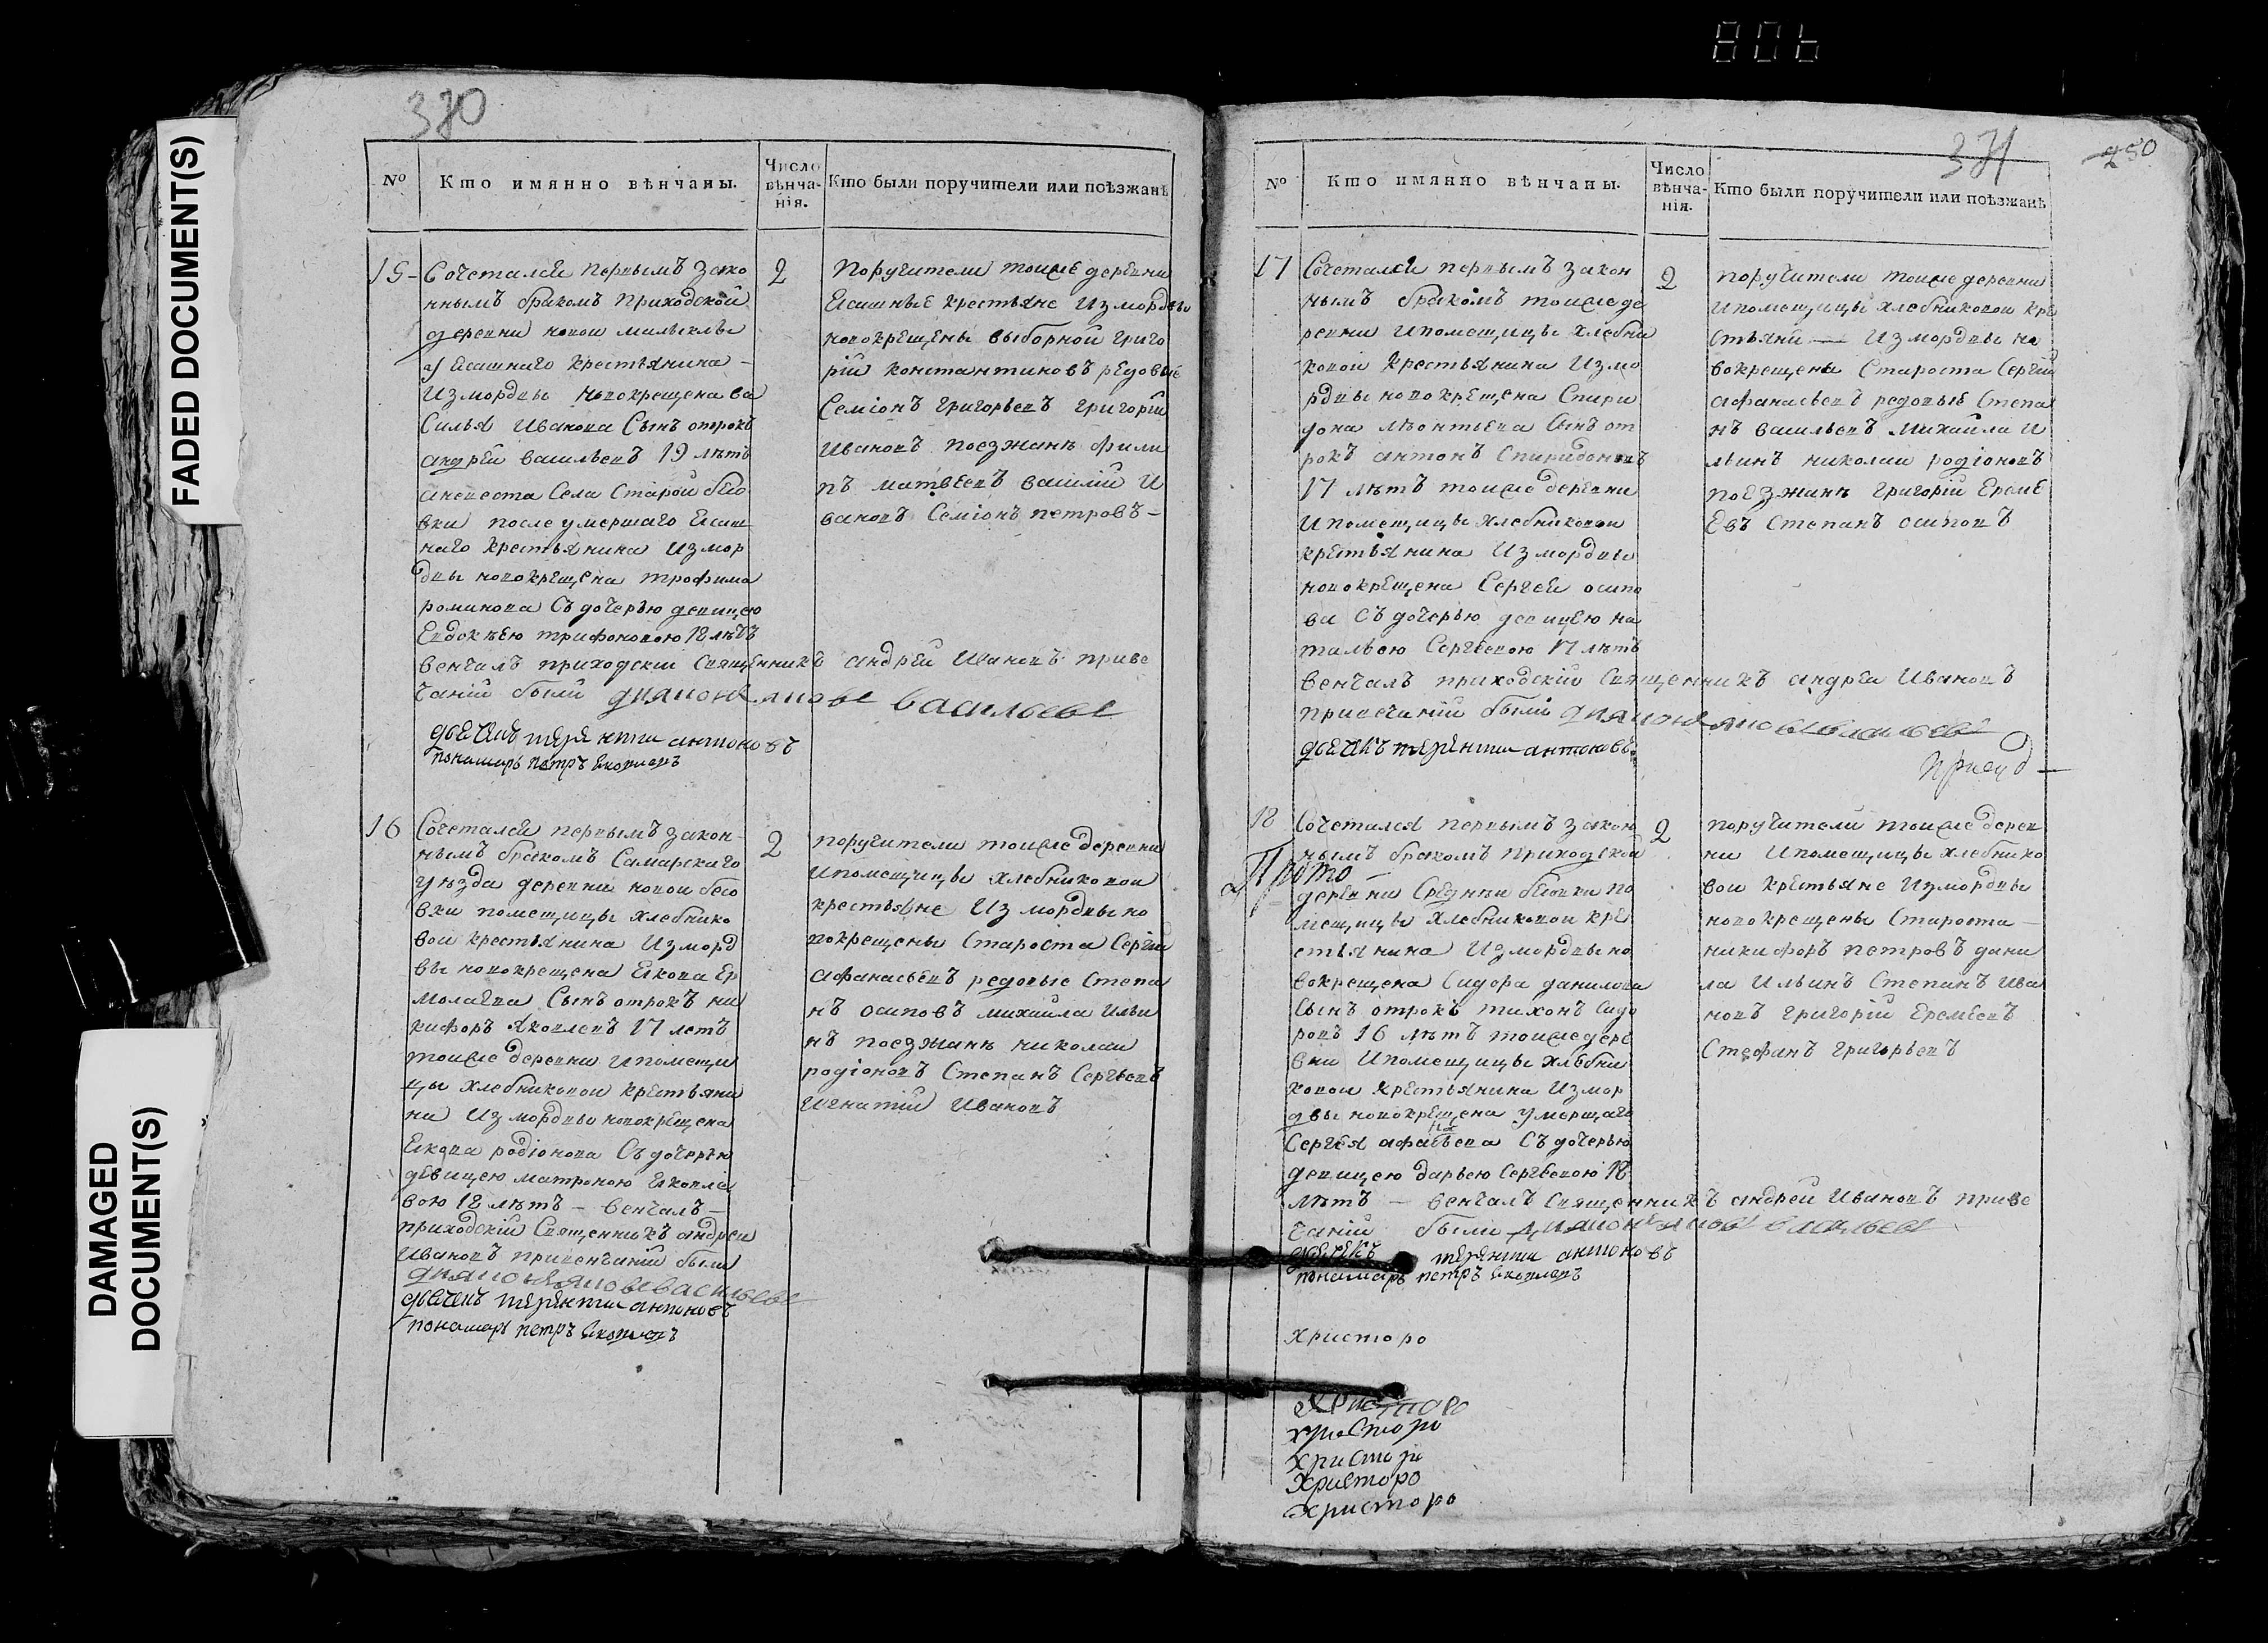 806
FADED DOCUMENT(S)
DAMAGED
DOCUMENT(S)
370
№
Кто имянно вѣнчаны.
Число
вѣнча-
нія.
Кто были поручители или поѣзжанѣ
15
Сочетался первымъ зако
ннымъ бракомъ приходской
деревни новои малыклы
ясашнаго крестьянина
измордвы новокрещена ва
силья иванова сынъ отрокъ
андрей васильевъ 19 лѣтъ
аневеста села старой бесо
вки после умершаго ясаш
наго крестьянина измор
двы новокрещена трофима
романова съ дочерью девицею
Евдокѣею трифоновою 18 лѣтъ
венчалъ приходскии священникъ андрей Ивановъ приве
чаніи были васильевъ
дьечекъ терентии антоновъ
понамарь петръ
2
Поручители тоиже деревни
ясашные крестьяне измордвы
новокрещены выборной григо
рій константиновъ редовые
Семіонъ григорьевъ григорій
ивановъ поезжанѣ фили
пъ матвеевъ василій и
вановъ Семіонъ петровъ
16
Сочетался первымъ закон
нымъ бракомъ Самарскаго
уѣзда деревни новои бесо
вки помещицы хлебнико
вои крестьянина изморд
вы новокрещена якова ер
молаева сынъ отрокъ ни
кифоръ яковлевъ 17 летъ
тоиже деревни ипомещи
цы хлебниковои крестьяни
на измордвы новокрещена
якова родіонова съ дочерью
девицею матроною яковле
вою 18 лѣтъ – венчалъ –
приходскій священникъ андрей
Ивановъ привенчаніи были
васильевъ
дьечекъ терентии антоновъ
понамарь петръ
2
поручители тоиже деревни
ипомещицы хлебниковои
крестьяне измордвы но
вокрещены староста Сергій
афанасьевъ редовые Степа
нъ осиповъ михайла ильи
нъ поезжанѣ николаи
родіоновъ Степанъ Сергѣевъ
игнатіи Ивановъ
371
250
№
Кто имянно вѣнчаны.
Число
вѣнча-
нія.
Кто были поручители или поѣзжанѣ
17
Сочетался первымъ закон
нымъ бракомъ тоиже де
ревни ипомещицы хлебни
ковои крестьянина измо
рдвы новокрещена Спири
дона леонтьева сынъ от
рокъ антонъ Спиридоновъ
17 лѣтъ тоиже деревни
ипомещицы хлебниковои
крестьянина измордвы
новокрещена Сергея осипо
ва съ дочерью девицею на
тальею Сергѣевою 17 лѣтъ
венчалъ приходскій священникъ андреи Ивановъ
привечаніи были
дьечекъ терентии антоновъ
2
поручители тоиже деревни
ипомещицы хлебниковои кре
стьяни — измордвы но
вокрещены Староста Сергій
афанасьевъ редовые Степа
нъ васильевъ михайла и
льинъ николаи родіоновъ
поезжанѣ григорій ереме
евъ Степанъ осиповъ
18
Сочетался первымъ закон
нымъ бракомъ приходской
деревни Средней бесовки по
мещицы хлебниковои кре
стьянина измордвы но
вокрещена Сидора данилова
сынъ отрокъ тихонъ сидо
ровъ 16 лѣтъ тоиже дере
вни ипомещицы хлебни
ковои крестьянина измор
двы новокрещена умершаго
на
Сергея афасьева съ дочерью
девицею дарьею Сергѣевою 18
лѣтъ – венчалъ священникъ андрей Ивановъ приве
чаніи были васильевъ
дьечекъ терентии антоновъ
понамарь петръ
2
поручители тоиже дерев
ни ипомещицы хлебнико
вои крестьяне измордвы
новокрещены Староста
никифоръ петровъ дани
ла ильинъ Степанъ Ива
новъ григорій еремѣевъ
Стефанъ григорьевъ
христоро
христоро
христоро
христоро
христоро
христоро